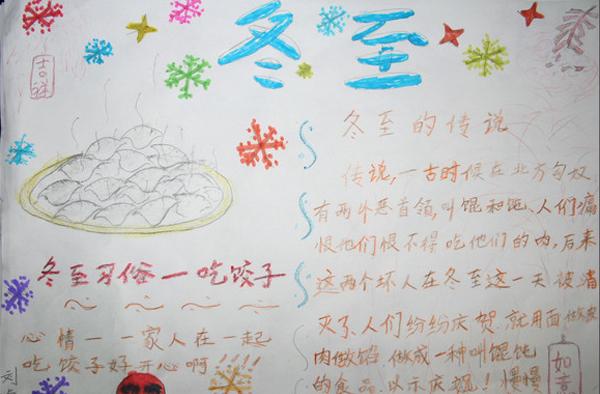 冬至
吉祥
冬至的传说
传说,一古时候在北方匈奴
有两个恶首领,叫馄和饨.人们痛
恨他们恨不得吃他们的肉,后来
这两个坏人在冬至这一天被消
灭了.人们纷纷庆贺.就用面做
肉做馅.做成一种叫馄饨
的食品.以示庆祝!慢慢
冬至习俗一吃饺子
心情一一家人在一起
吃饺子好开心啊!!!!
如意
刘